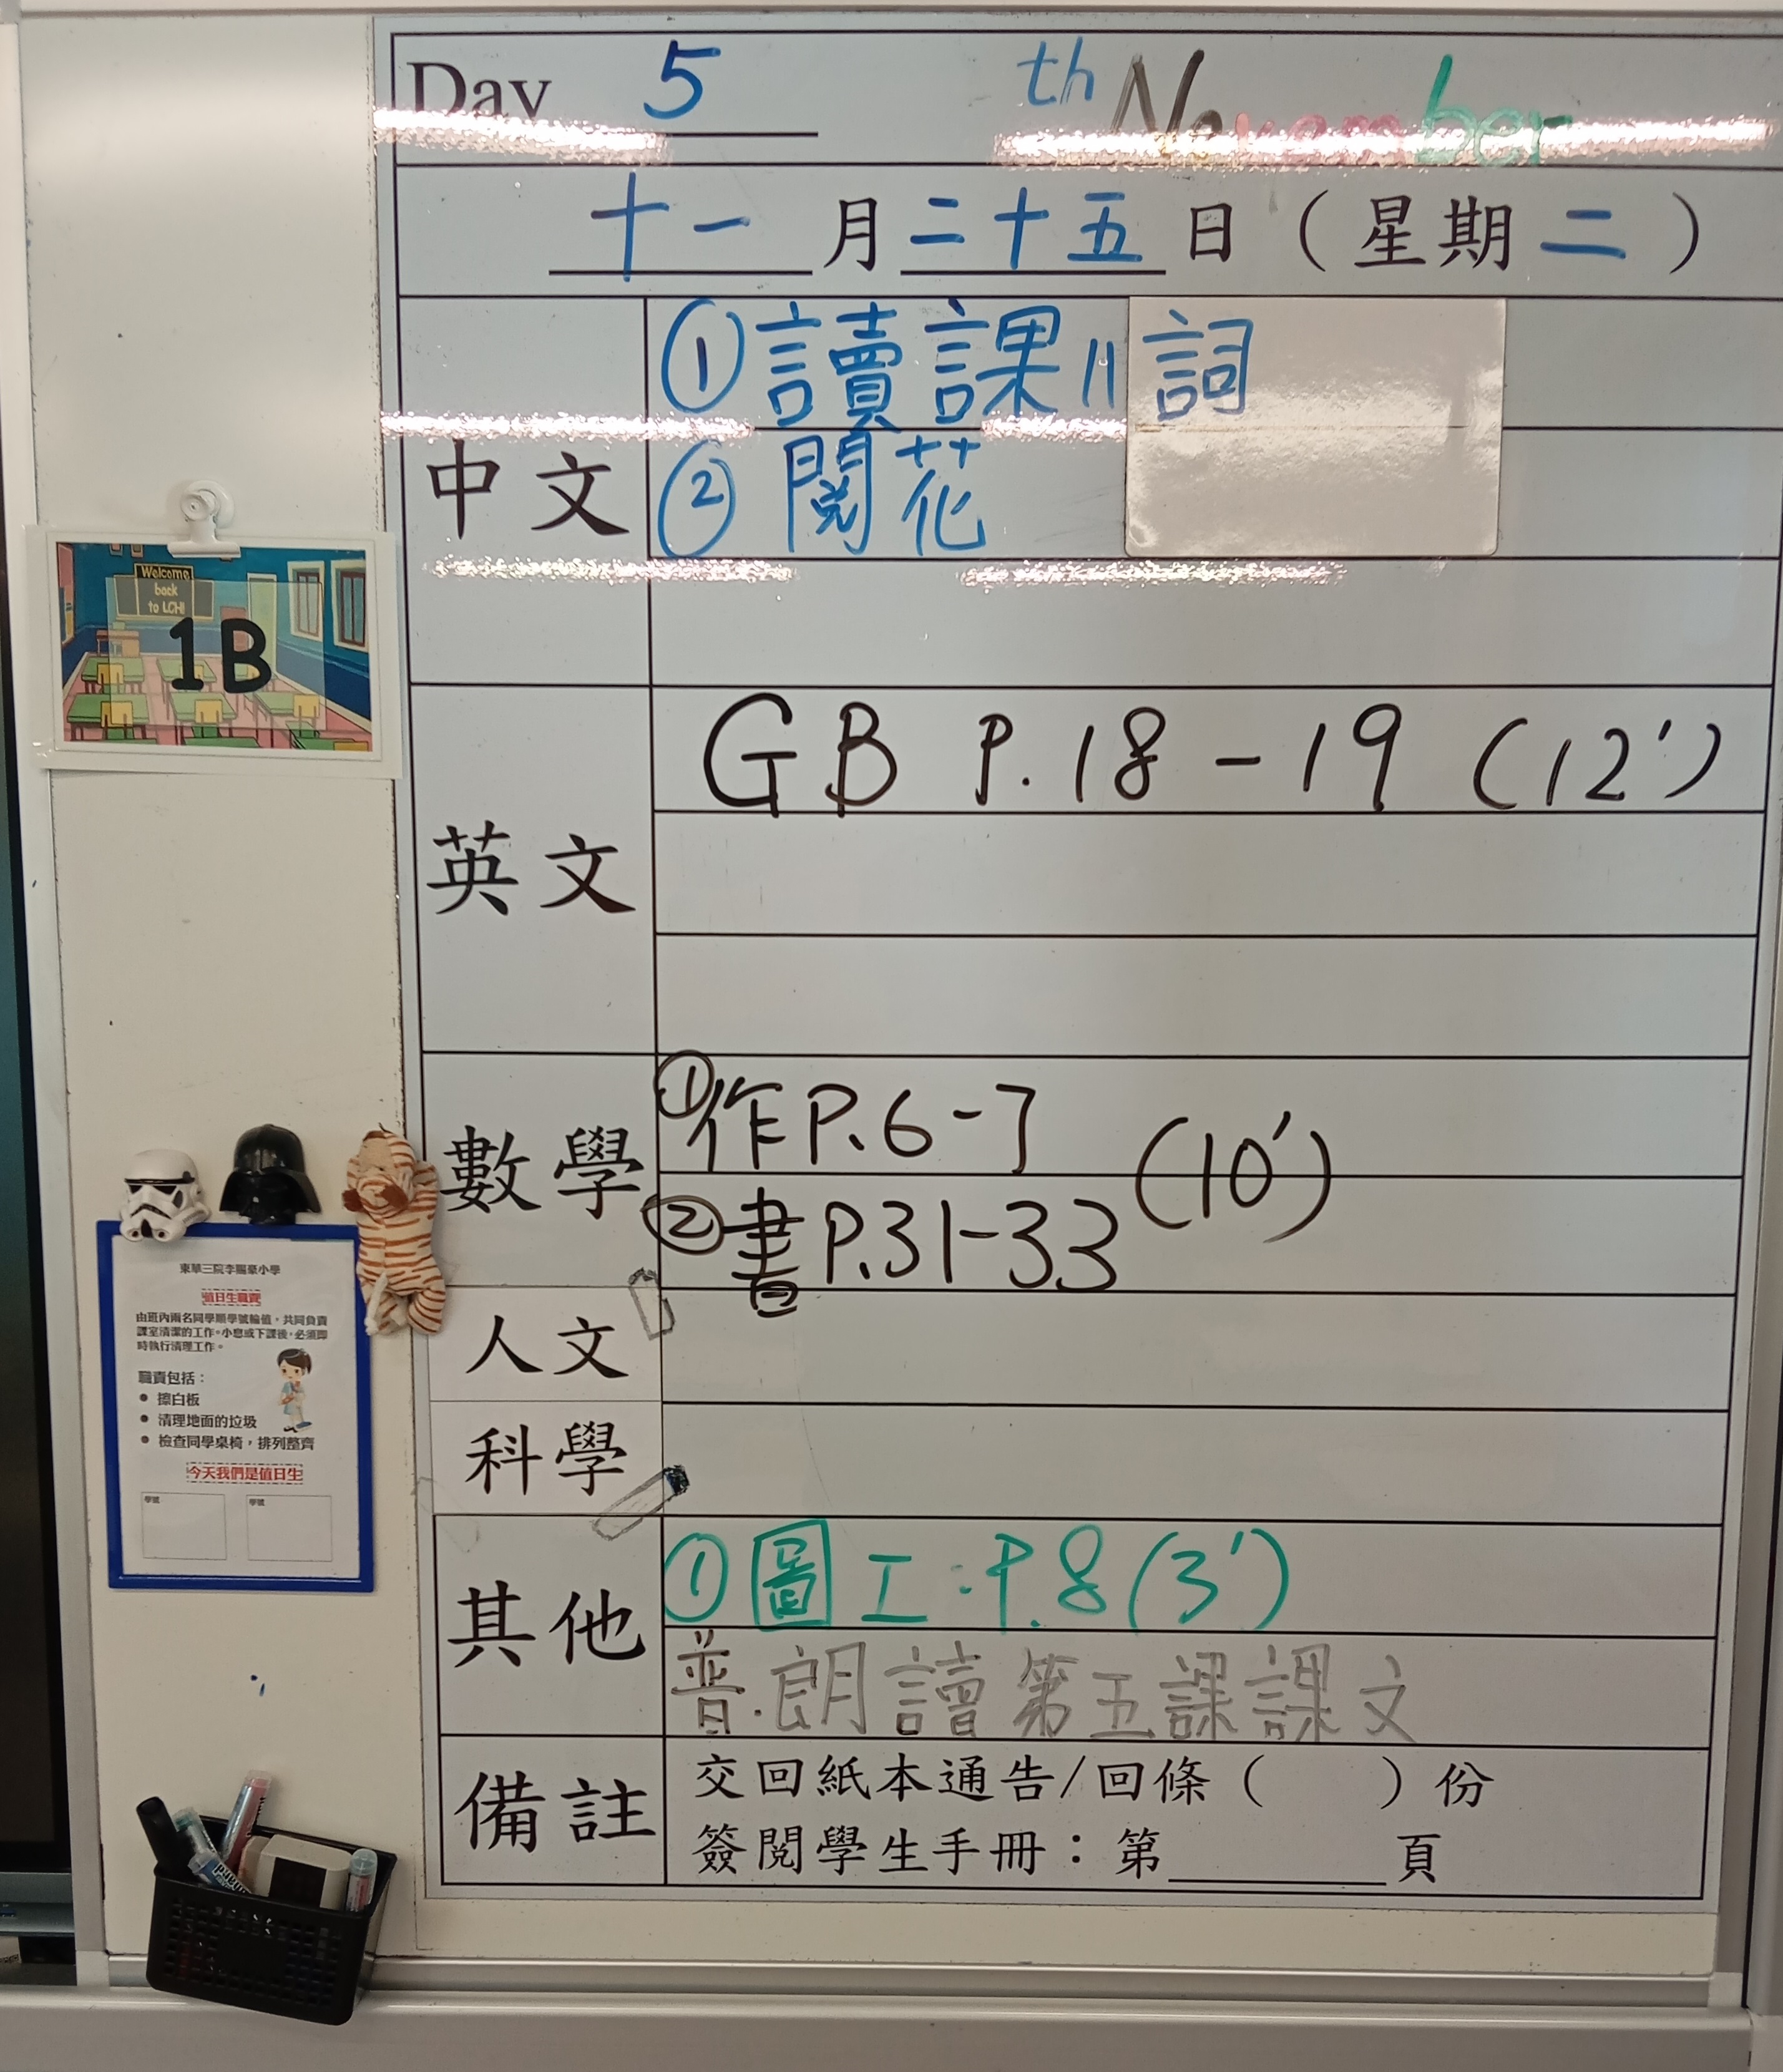 Day 5 th November
十一月二十五日（星期二）
中文
①讀課11詞
②閱花
英文
GB P.18-19 (12')
數學
①作P.6-7
②書P.31-33
(10')
人文
科學
其他
①圖工:P.8(3')
普.朗讀第五課課文
備註
交回紙本通告/回條（ ）份
簽閱學生手冊：第______頁
Welcome
back
to LCH!
1B
東華三院李賜豪小學
值日生職責
由班內兩名同學順學號輪值，共同負責
課室清潔的工作。小息或下課後，必須即
時執行清理工作。
職責包括：
● 擦白板
● 清理地面的垃圾
● 檢查同學桌椅，排列整齊
今天我們是值日生
學號 學號